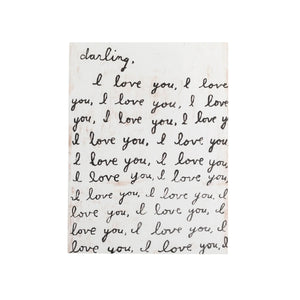 darling,
I love you, I love
you, I love you, I love
you, I love you, I love you,
I love you, I love you,
I love you, I love you,
I love you, I love you,
I love you, I love you, I
love you, I love you, I
love you, I love you, I
love you, I love you, I